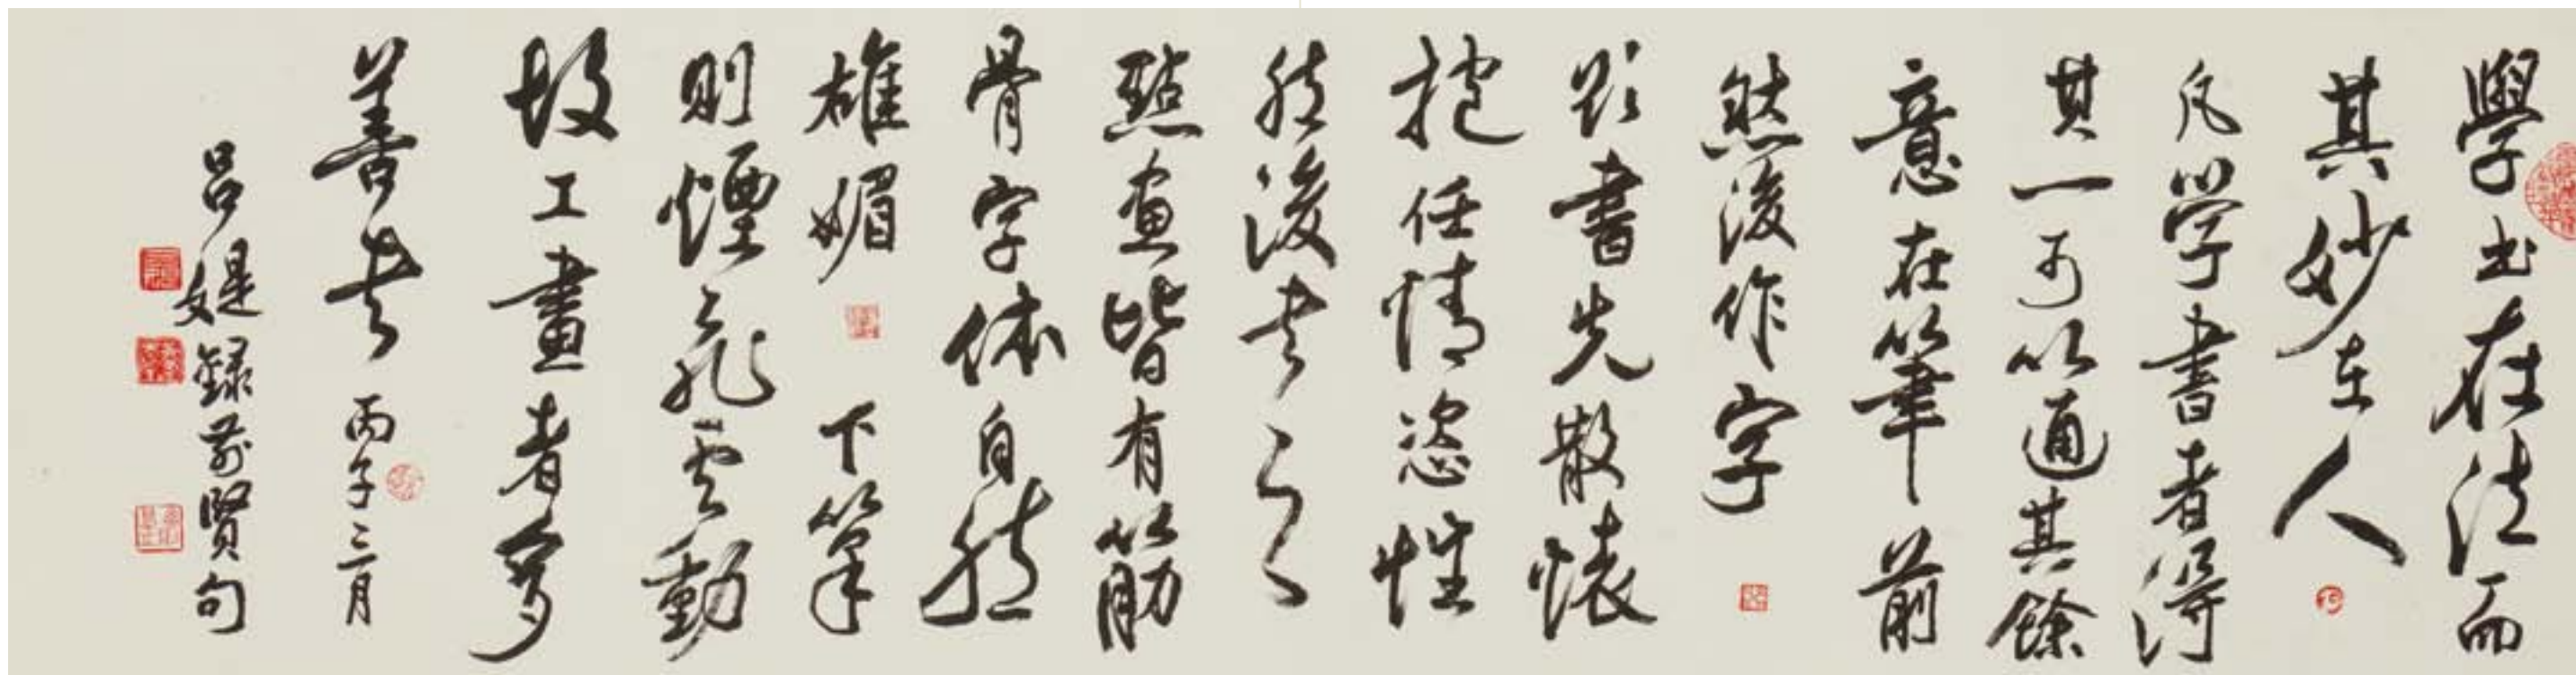 學书在法而
其妙在人
凡学書者得
其一可以通其餘
意在筆前
然後作字
欲書先散懷
抱任情恣性
然後書之
點畫皆有筋
骨字体自然
雄媚 下筆
則煙飛雲動
故工畫者多
善書 丙子三月
呂媞錄前賢句